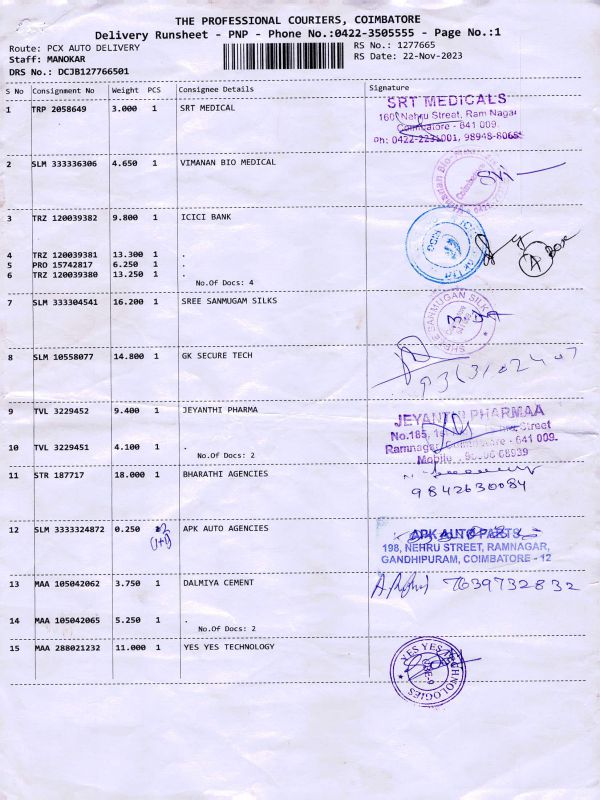 THE PROFESSIONAL COURIERS, COIMBATORE
Delivery Runsheet - PNP - Phone No.:0422-3505555 - Page No.:1
Route: PCX AUTO DELIVERY RS No.: 1277665
Staff: MANOKAR RS Date: 22-Nov-2023
DRS No.: DCJB127766501
S No Consignment No Weight PCS Consignee Details Signature
1 TRP 2058649 3.000 1 SRT MEDICAL
SRT MEDICALS
160, Nehru Street, Ram Nagar
Coimbatore - 641 009.
Ph: 0422-2231001, 98948-80685
2 SLM 333336306 4.650 1 VIMANAN BIO MEDICAL
3 TRZ 120039382 9.800 1 ICICI BANK
4 TRZ 120039381 13.300 1 .
5 PRO 15742817 6.250 1 .
6 TRZ 120039380 13.250 1 .
No.Of Docs: 4
7 SLM 333304541 16.200 1 SREE SANMUGAM SILKS
SHREE SANMUGAN SILK
8 SLM 10558077 14.800 1 GK SECURE TECH
9 TVL 3229452 9.400 1 JEYANTHI PHARMA
JEYANTHI PHARMAA
No.185, Street
Ramnagar, Coimbatore - 641 009.
Mobile 68939
10 TVL 3229451 4.100 1 .
No.Of Docs: 2
11 STR 187717 18.000 1 BHARATHI AGENCIES
9842630084
12 SLM 3333324872 0.250 2 APK AUTO AGENCIES
(1+1)
APK AUTO PARTS
198, NEHRU STREET, RAMNAGAR,
GANDHIPURAM, COIMBATORE - 12
13 MAA 105042062 3.750 1 DALMIYA CEMENT
7639732832
14 MAA 105042065 5.250 1 .
No.Of Docs: 2
15 MAA 288021232 11.000 1 YES YES TECHNOLOGY
YES YES TECHNOLOGIES
CBE-9